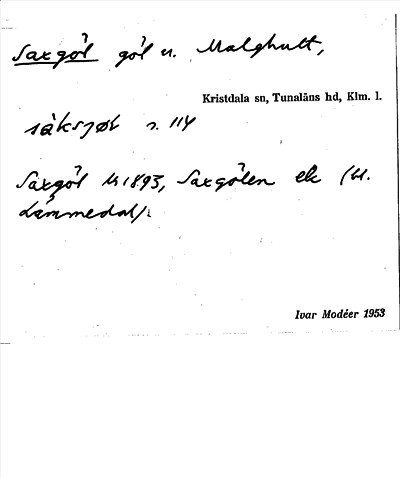 Saxgöl göl n. Malghult,
Kristdala sn, Tunaläns hd, Klm. l.
s. 114
Saxgöl 1893, Saxgölen ek (H.
Lämmedal).
Ivar Modéer 1953